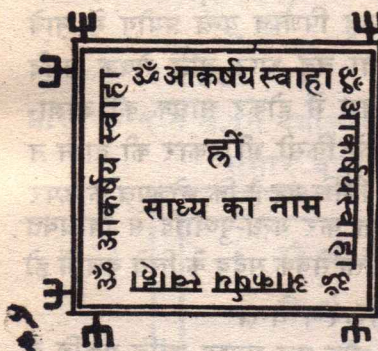 ॐ आकर्षय स्वाहा
ॐ आकर्षय स्वाहा
ॐ आकर्षय स्वाहा
ॐ आकर्षय स्वाहा
ह्रीं
साध्य का नाम